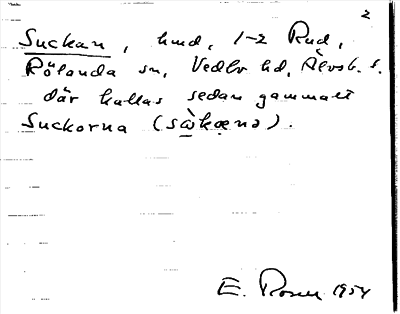 2
Suckan, hmd, 1-2 Rud,
Rölanda sn, Vedbo hd, Älvsb. s.
där kallas sedan gammalt
Suckorna (
).
E. Rosen 1954